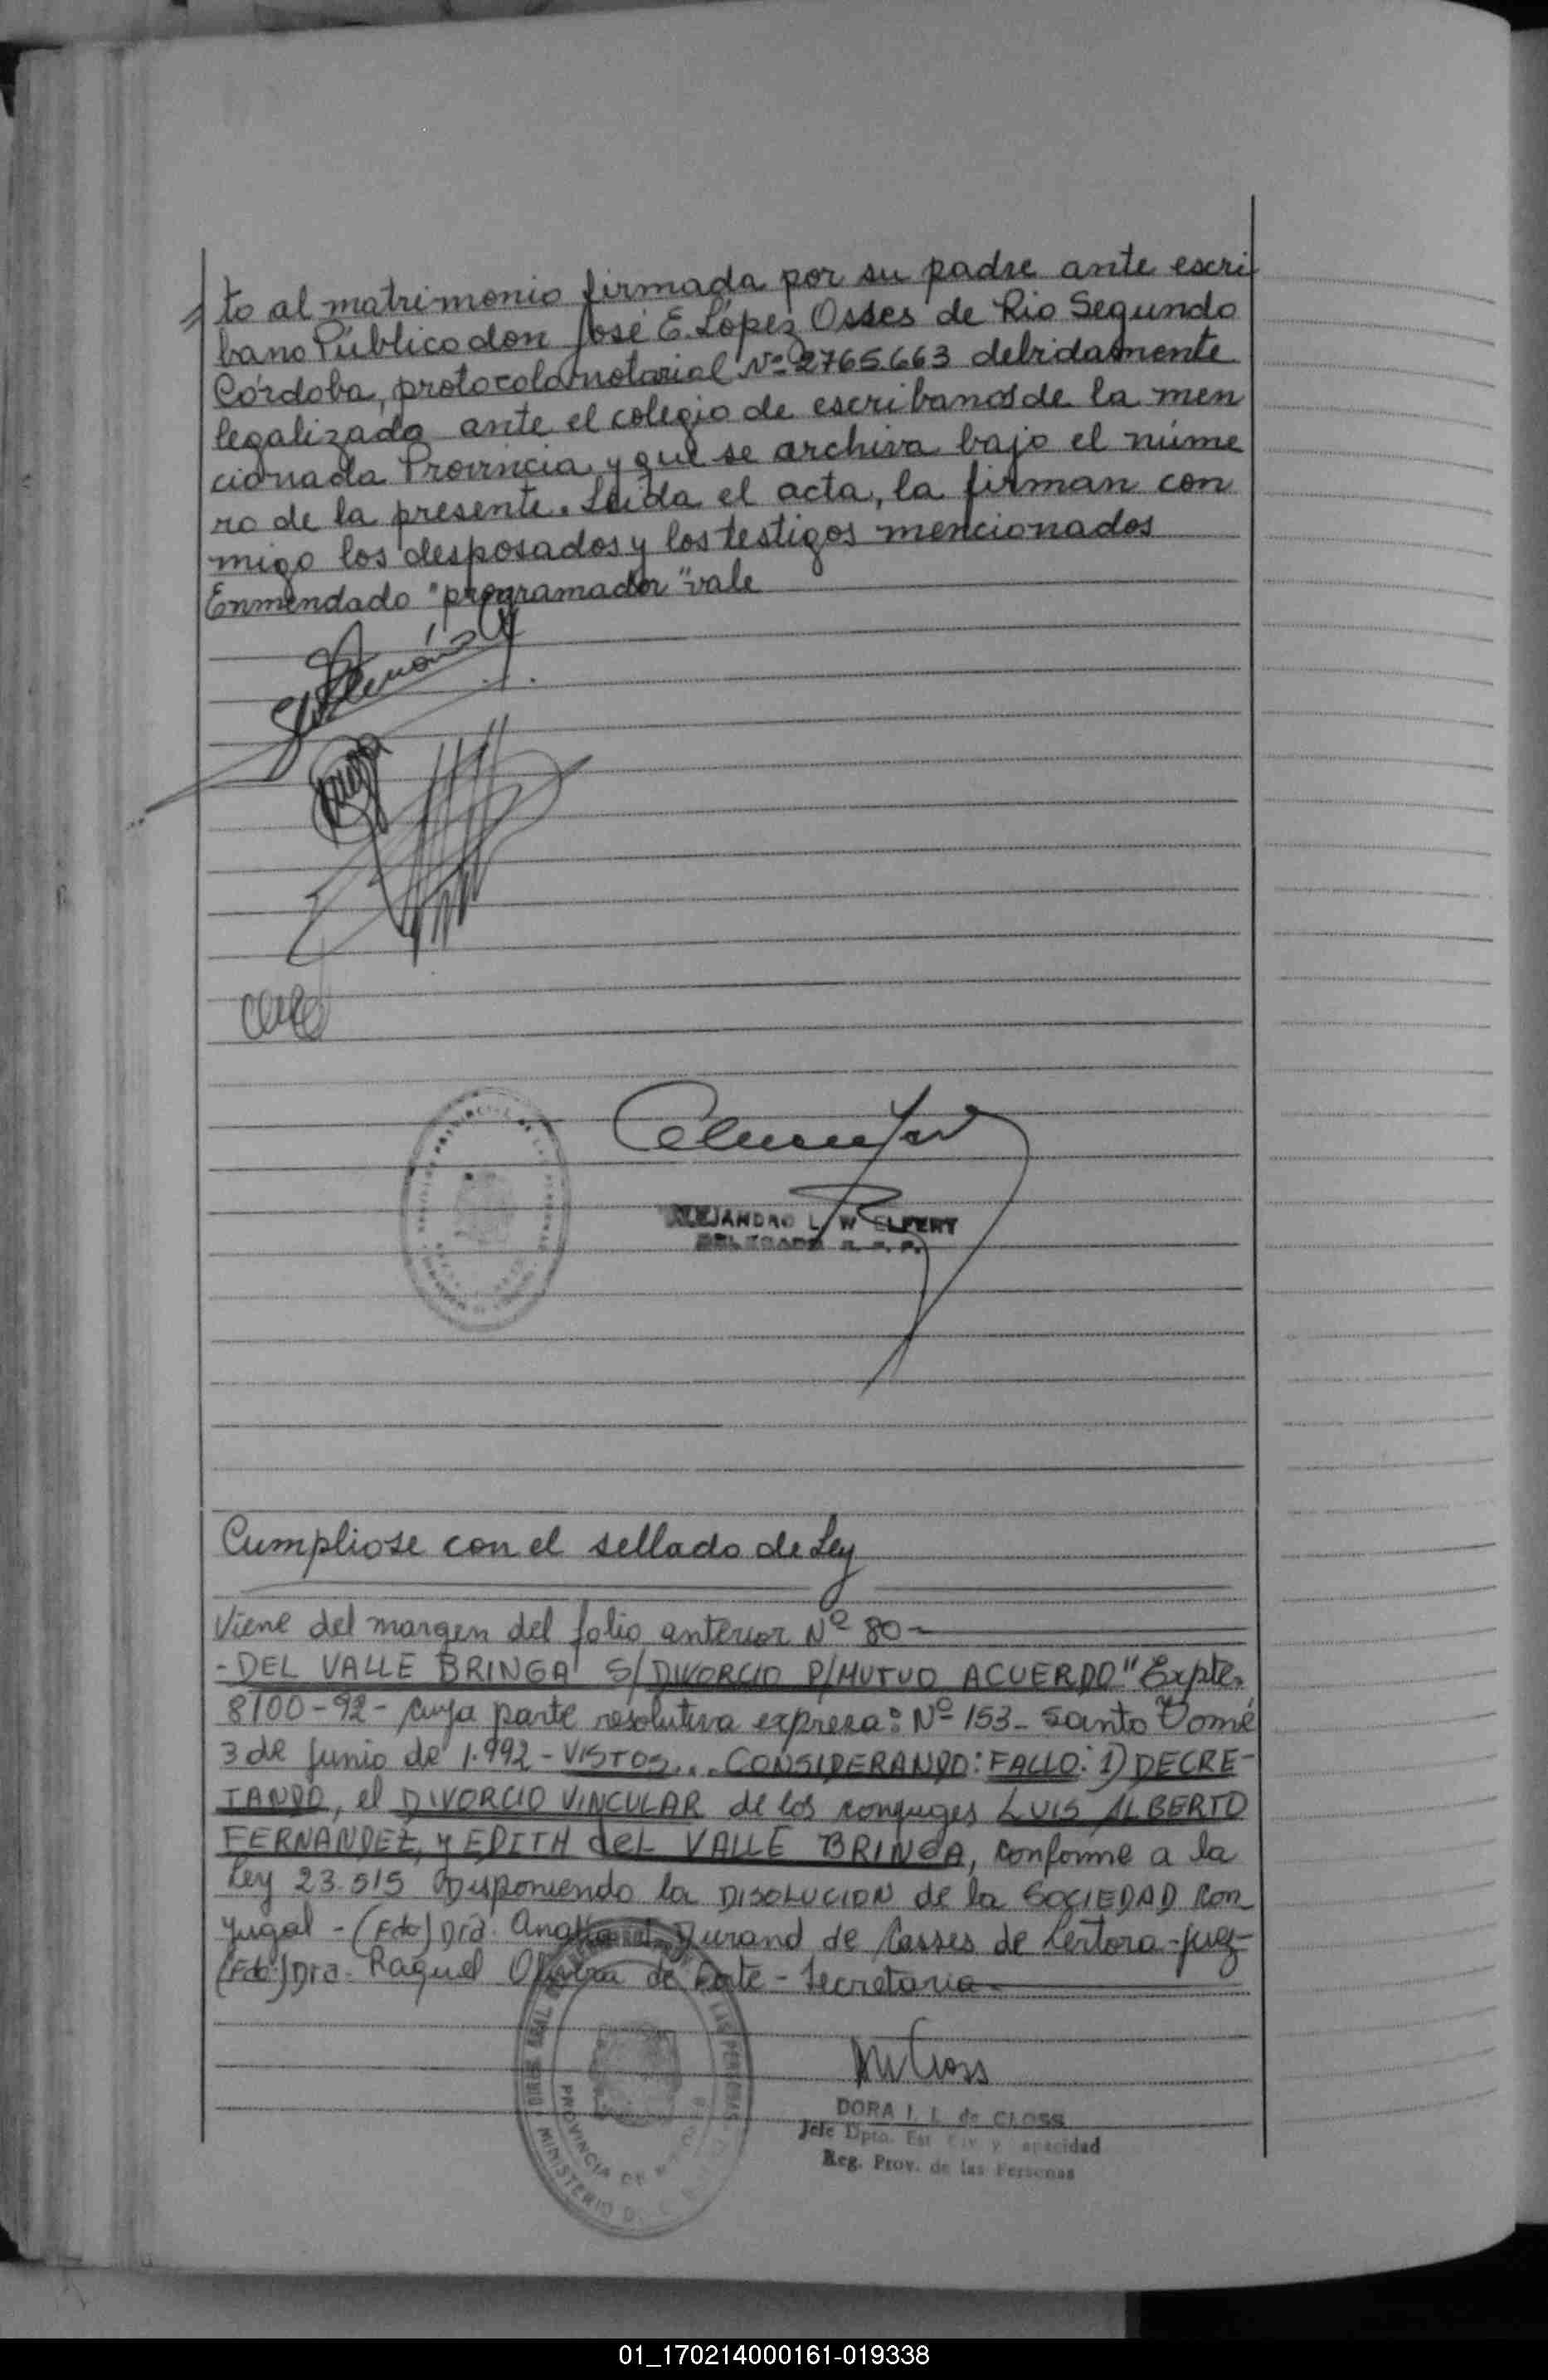 to al matrimonio firmada por su padre ante escri
bano Público don José E. López Osses de Rio Segundo
Córdoba, protocolo notarial Nº 2765.663 debidamente
legalizada ante el colegio de escribanos de la men
cionada Provincia y que se archiva bajo el núme
ro de la presente. Leida el acta, la firman con
migo los desposados y los testigos mencionados
Enmendado "programador" vale
ALEJANDRO L. W. ELFERT
DELEGADO R. P. P.
Cumpliose con el sellado de Ley
Viene del margen del folio anterior Nº 80-
-DEL VALLE BRINGA S/DIVORCIO P/MUTUO ACUERDO" Expte.
8100-92- cuya parte resolutiva expresa: Nº 153- Santo Tomé
3 de Junio de 1.992 - VISTOS... CONSIDERANDO: FALLO: 1) DECRE-
TANDO, el DIVORCIO VINCULAR de los conyuges LUIS ALBERTO
FERNANDEZ, y EDITH del VALLE BRINGA, conforme a la
Ley 23.515 Disponiendo la DISOLUCION de la SOCIEDAD Con
yugal - (Fdo) Dra. Durand de Casses de Lertora - juez-
(Fdo) Dra. Raquel de - Secretaria-
DORA I. L. de CLOSS
Jefe Dpto. Est Civ y apacidad
Reg. Prov. de las Personas
PROVINCIA DE
MINISTERIO D
LAS PERSONAS
01_170214000161-019338